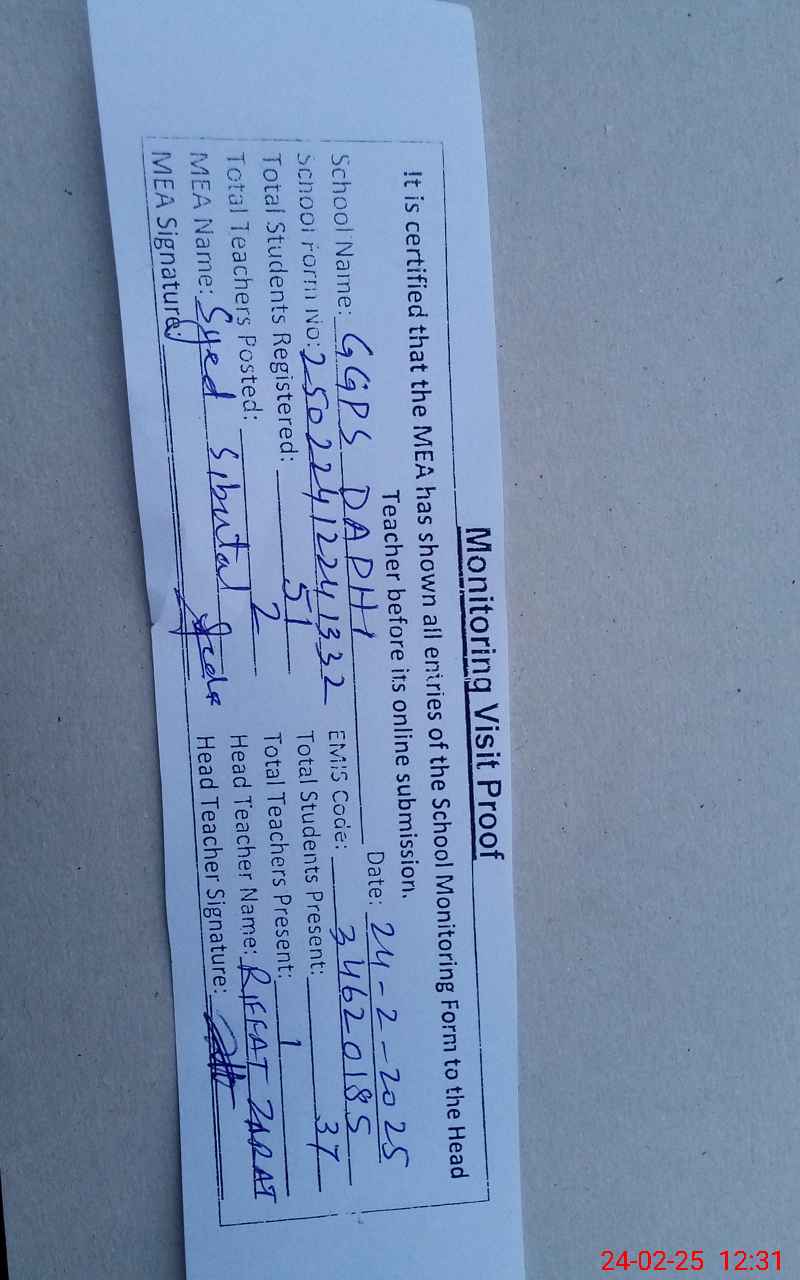 Monitoring Visit Proof
It is certified that the MEA has shown all entries of the School Monitoring Form to the Head
Teacher before its online submission.
Date: 24-2-2025
School Name: GGPS DAPHI
School Form No: 250224122241332 EMIS Code: 34620185
Total Students Registered: 51 Total Students Present: 37
Total Teachers Posted: 2 Total Teachers Present: 1
MEA Name: Syed Head Teacher Name: RIFFAT
MEA Signature: Head Teacher Signature:
24-02-25 12:31